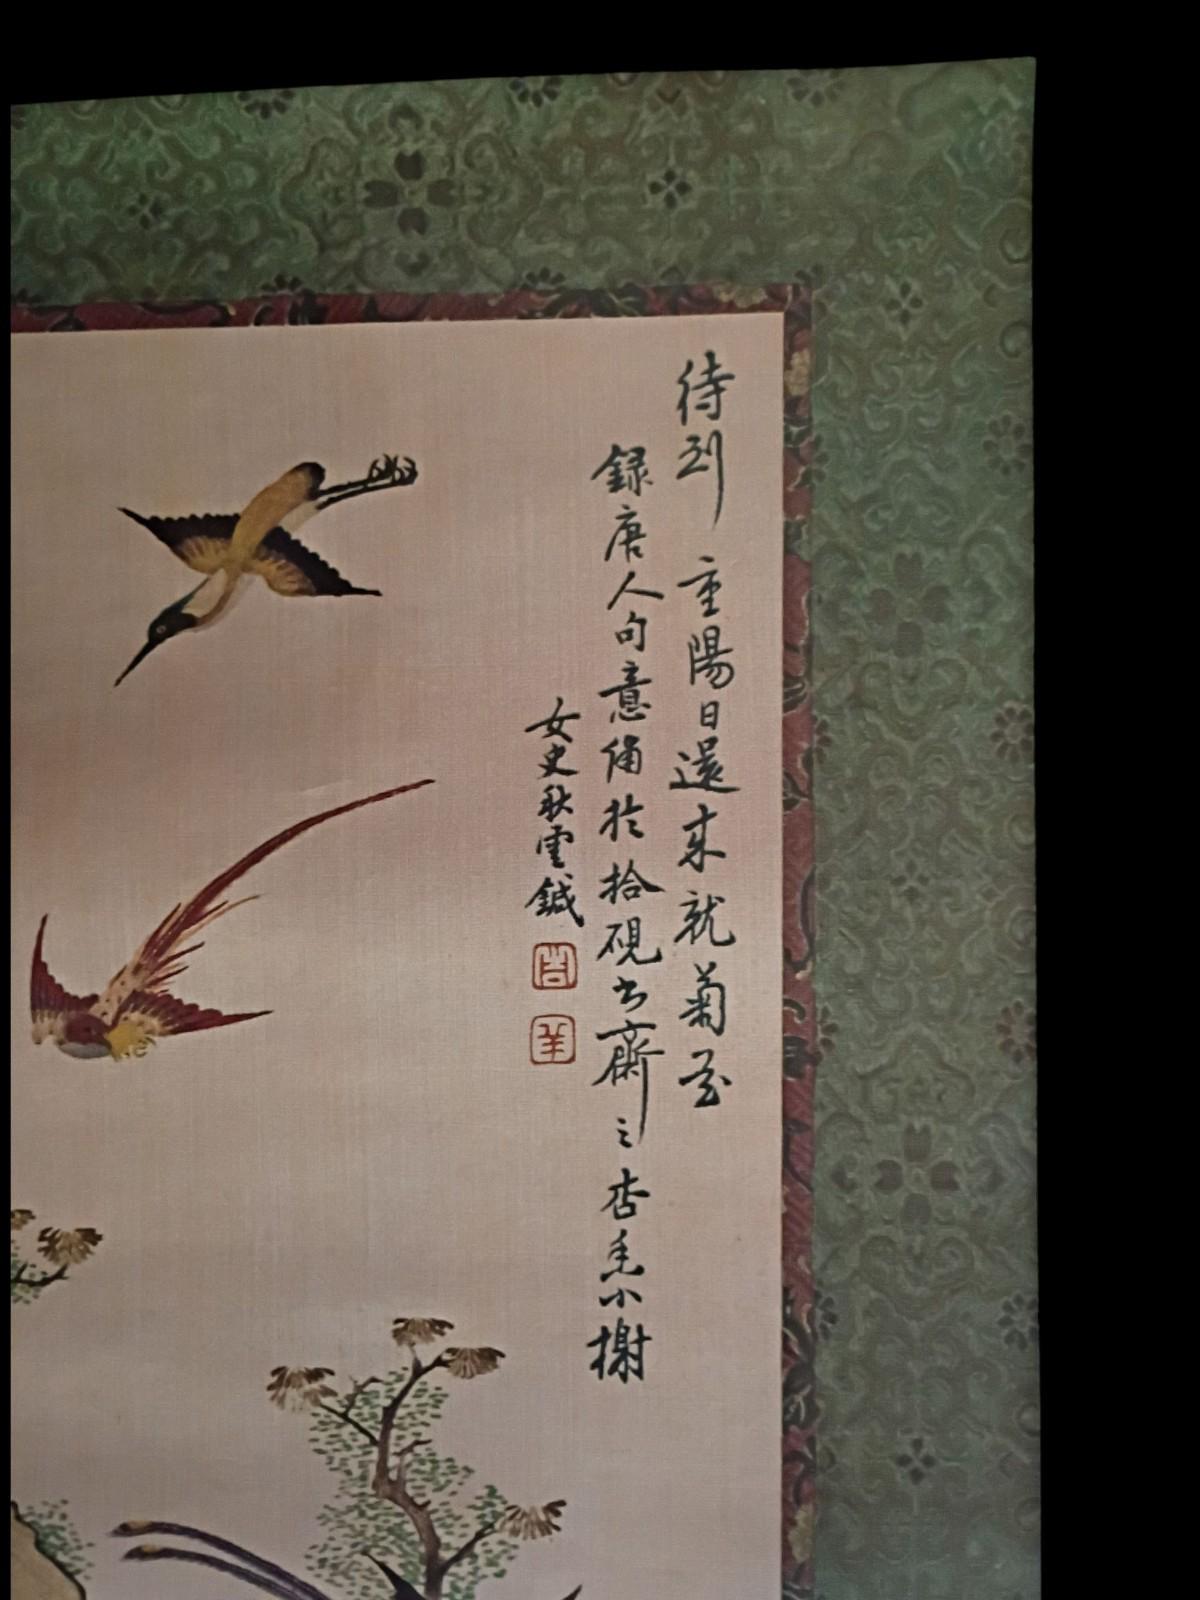 待到重陽日還来就菊花
録唐人句意偹於拾硯書齋之杏邨小榭
女史秋雲鍼